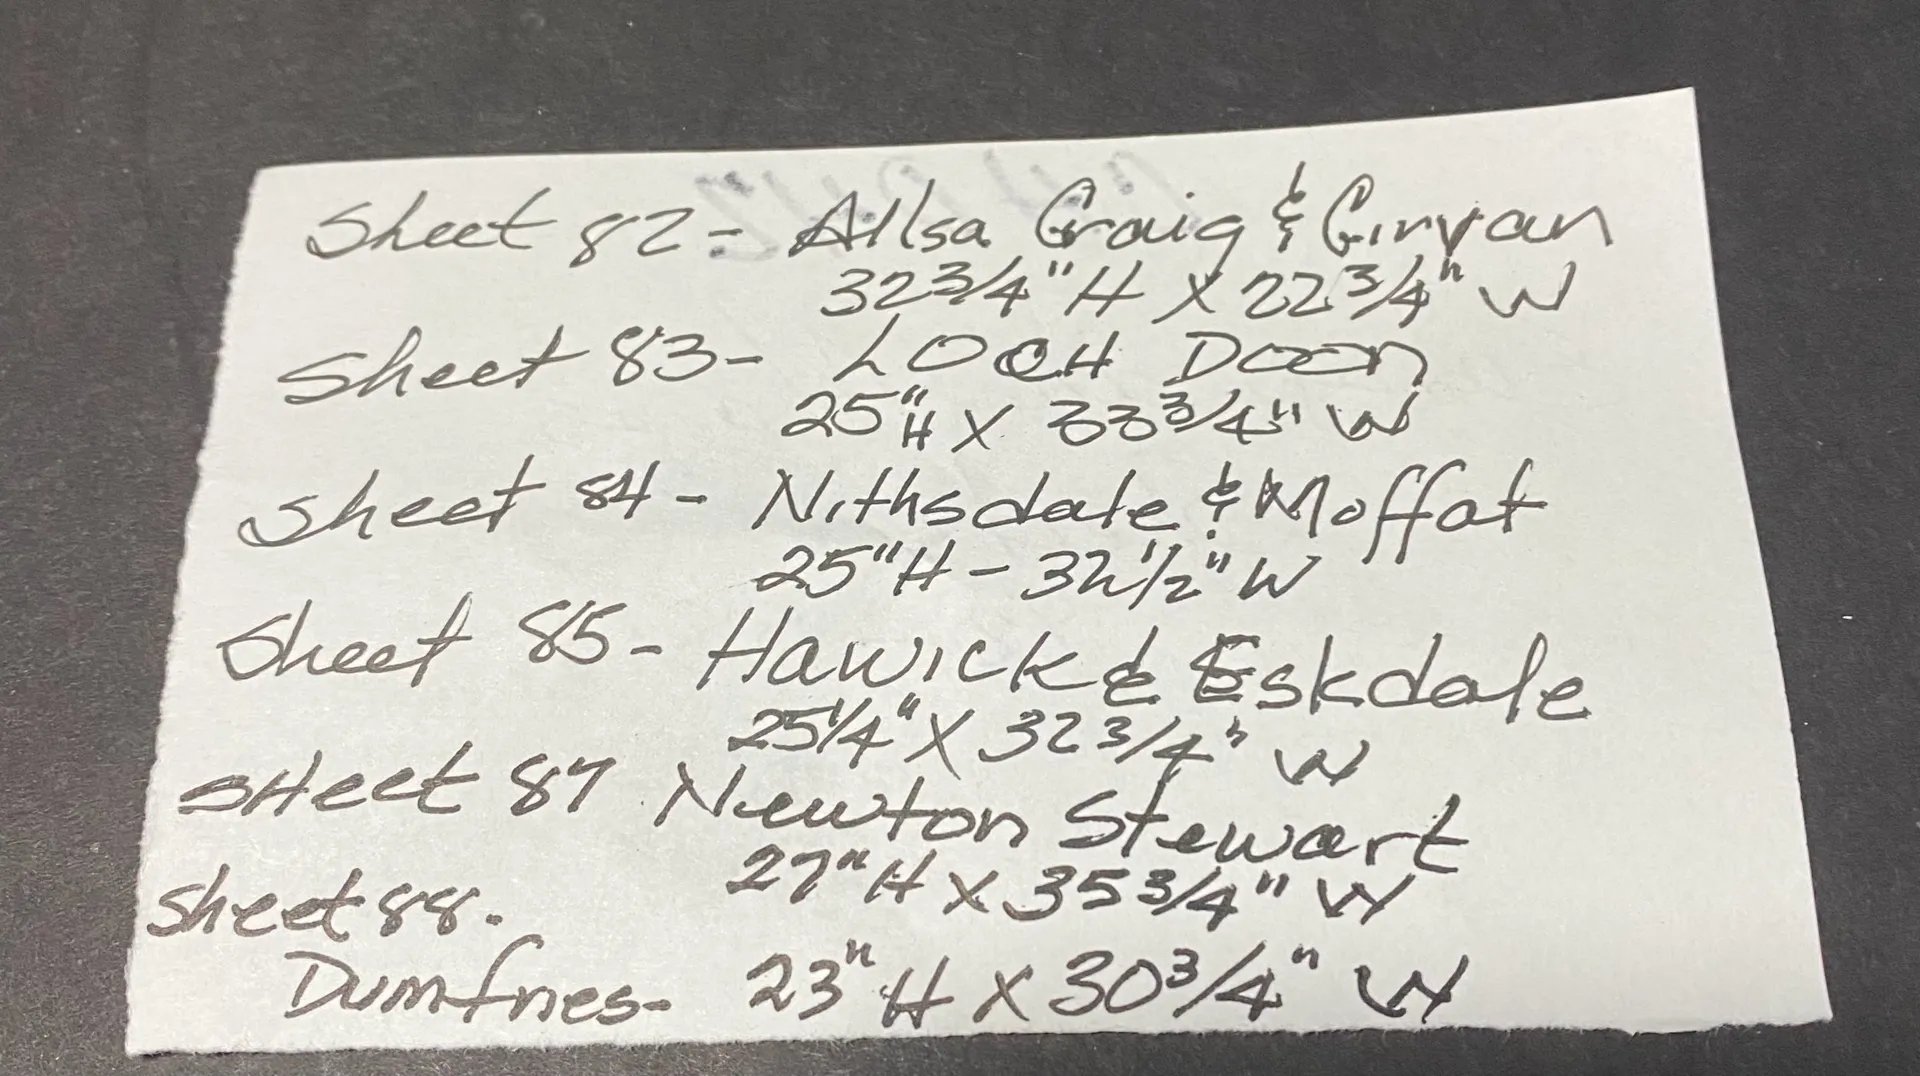 Sheet 82 - Ailsa Craig & Girvan
32 3/4" H X 22 3/4" W
Sheet 83 - LOCH Doon
25" H X 33 3/4" W
Sheet 84 - Nithsdale & Moffat
25" H - 32 1/2" W
Sheet 85 - Hawick & Eskdale
25 1/4" X 32 3/4" W
SHeet 87 Newton Stewart
27" H X 35 3/4" W
Sheet 88.
Dumfries - 23" H X 30 3/4" W